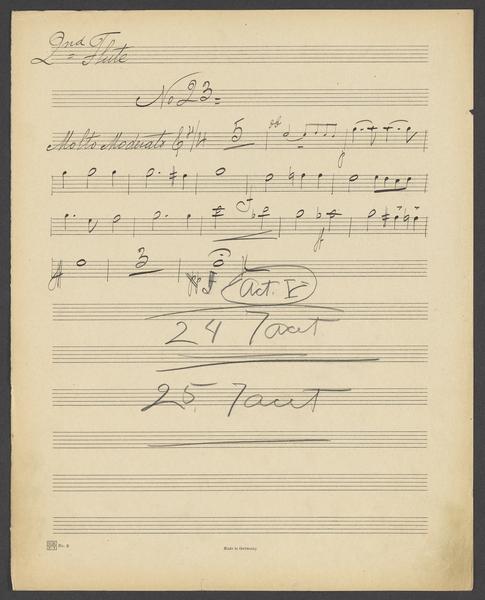 2nd Flute
No 23=
Molto Moderato 4/4 5
3
Act. I
24 Tacet
25 Tacet
No. 3
Made in Germany